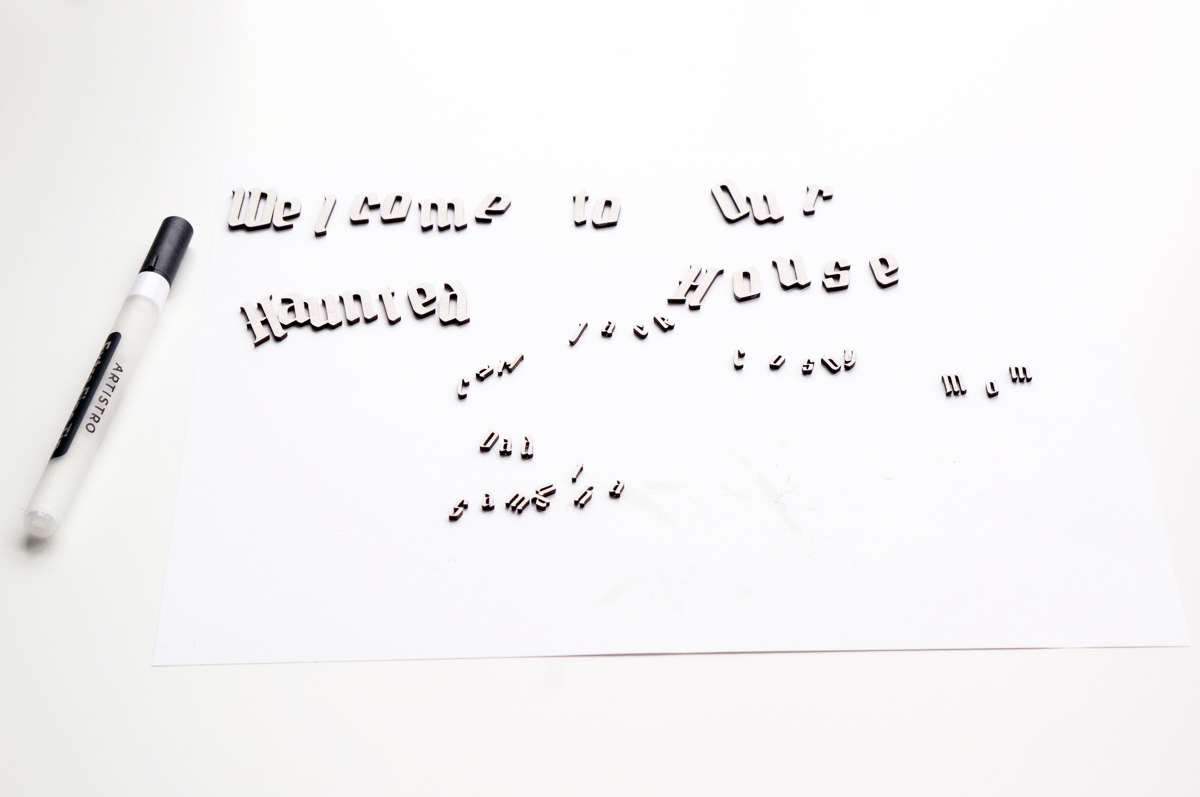 Welcome to Our
Haunted House
Jack
Carl
Cosby
Mom
Dad
ARTISTRO